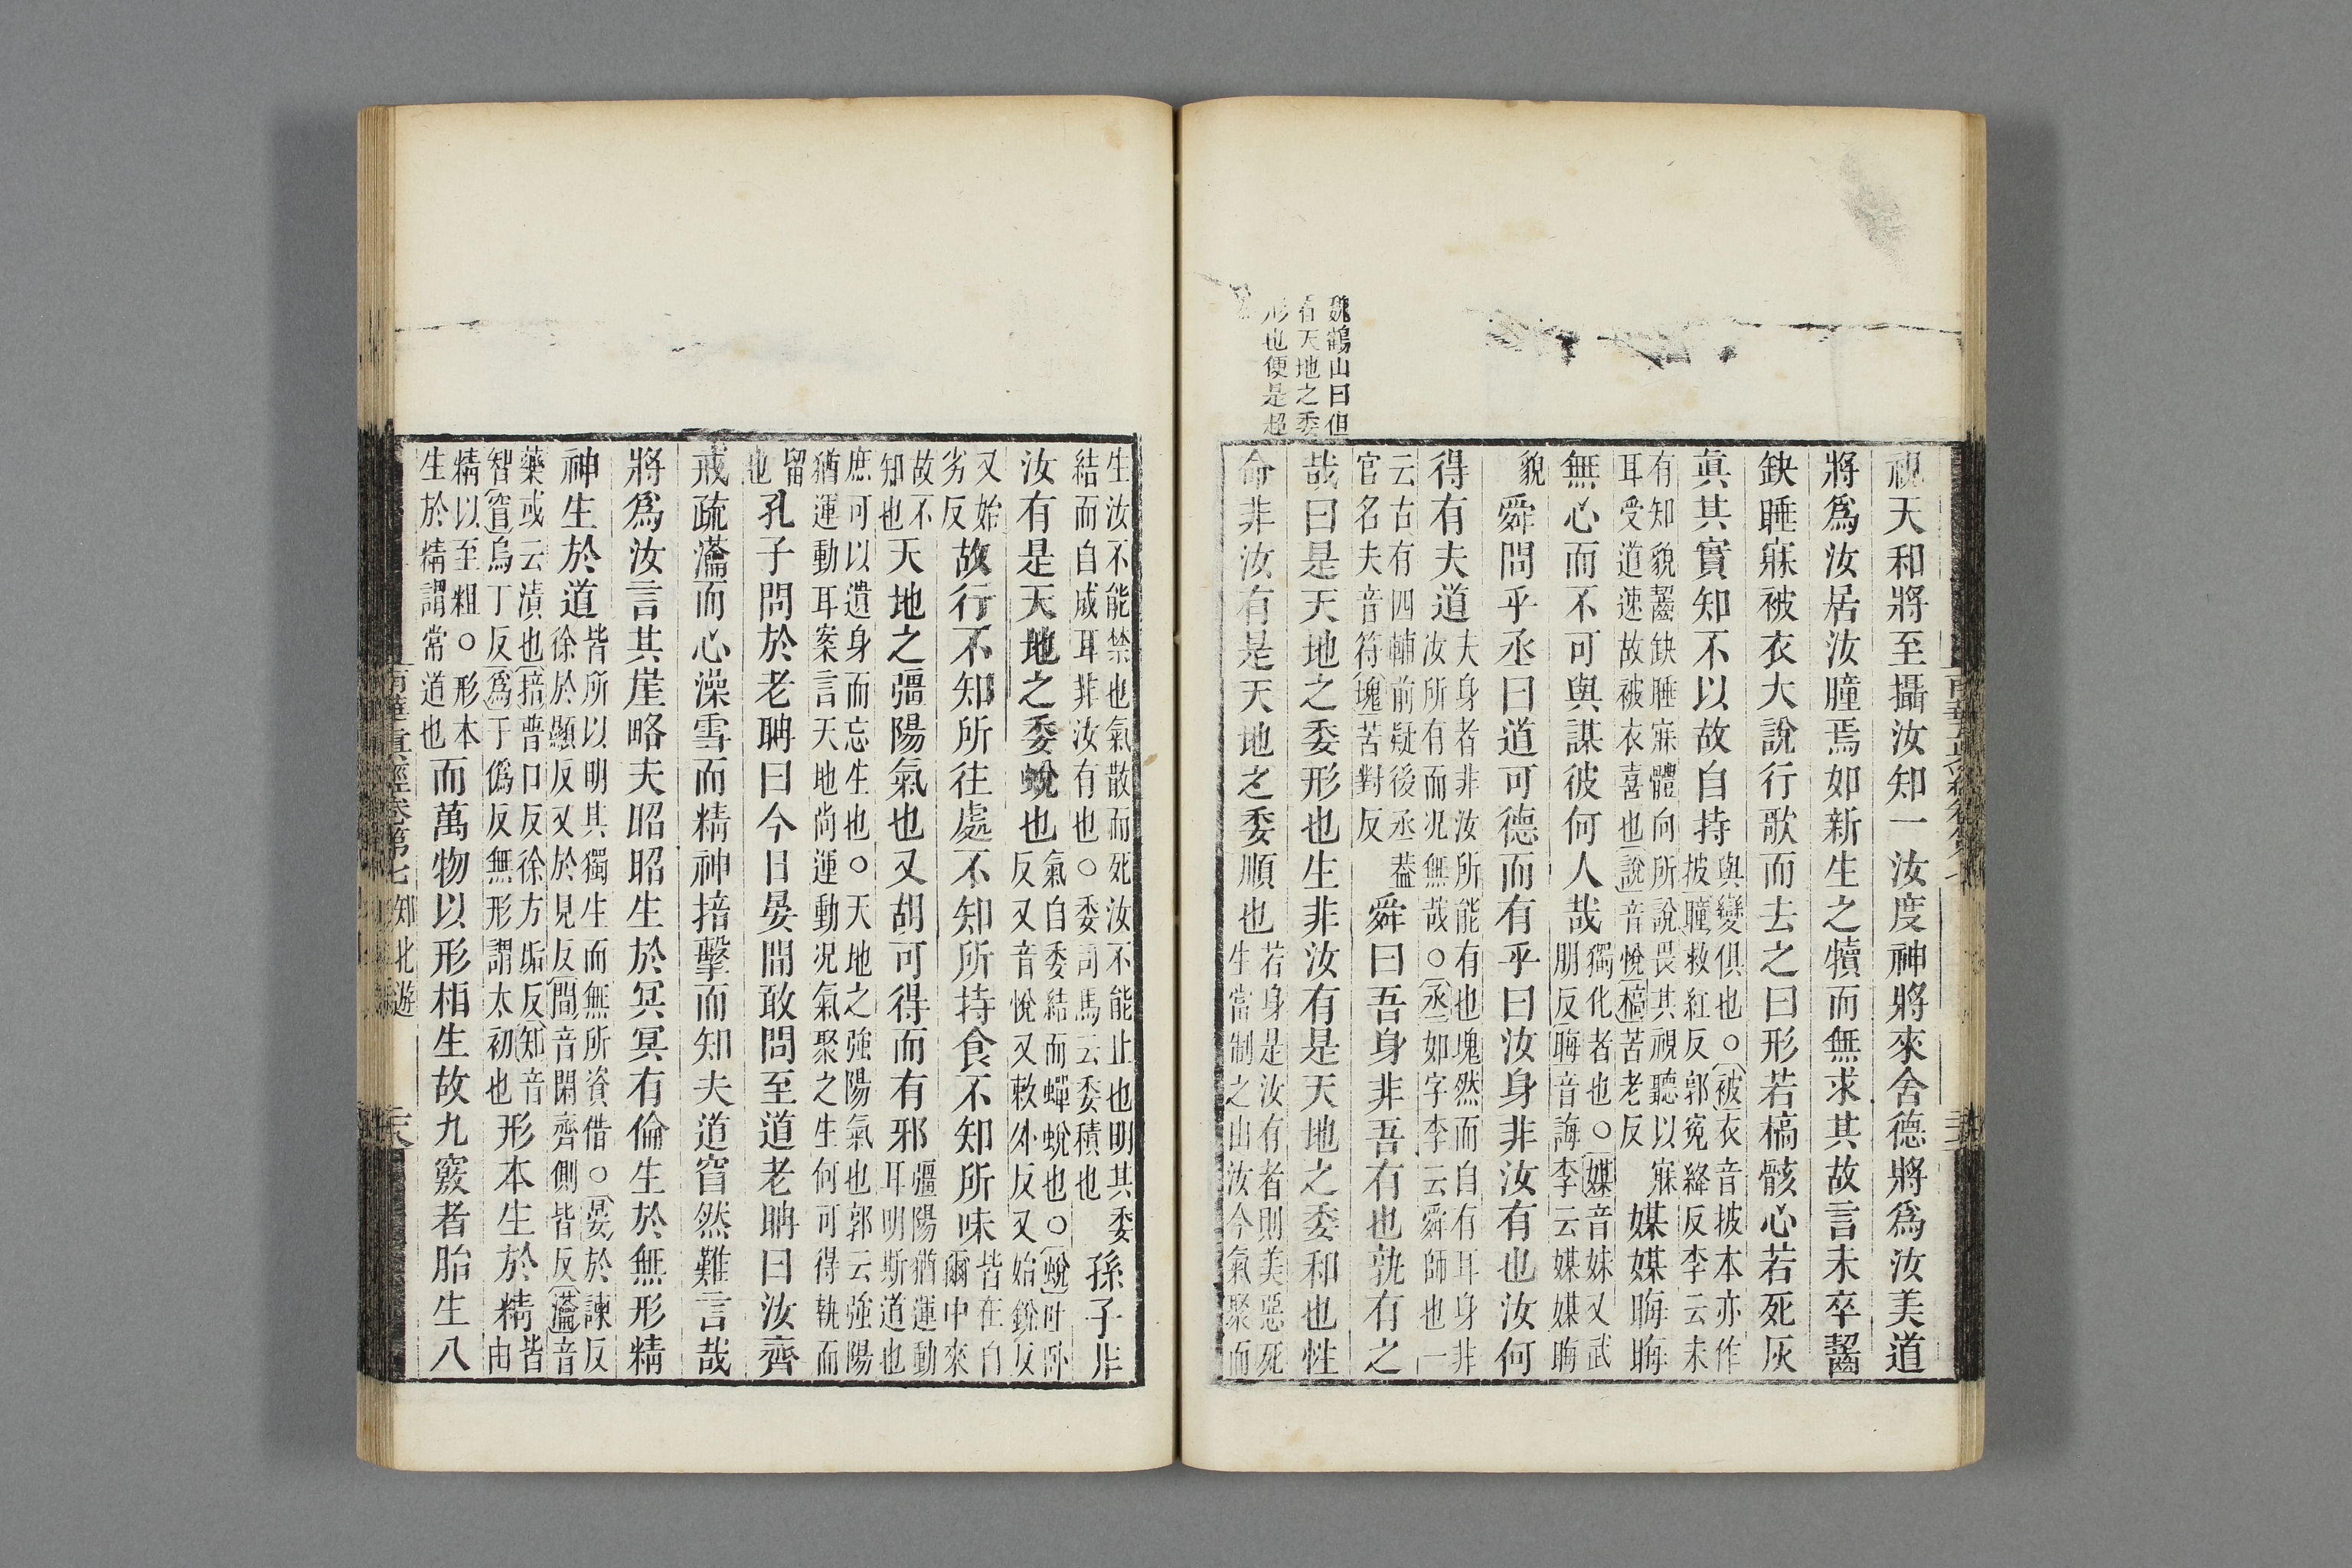 魏鶴山曰但
看天地之委
形也便是超
視天和將至攝汝知一汝度神將來舍德將爲汝美道
將爲汝居汝瞳焉如新生之犢而無求其故言未卒齧
缺睡寐被衣大說行歌而去之曰形若槁骸心若死灰
真其實知不以故自持
與變俱也○被衣音披本亦作
披瞳救紅反郭菟絳反李云未
有知貌齧缺睡寐體向所說畏其視聽以寐
耳受道速故被衣喜也說音悅槁苦老反
媒媒晦晦
無心而不可與謀彼何人哉
獨化者也○媒音妹又武
朋反晦音誨李云媒媒晦
貌
舜問乎丞曰道可德而有乎曰汝身非汝有也汝何
得有夫道
夫身者非汝所能有也塊然而自有耳身非
汝所有而况無哉○丞如字李云舜師也一
云古有四輔前疑後丞蓋
官名夫音符塊苦對反
舜曰吾身非吾有也孰有之
哉曰是天地之委形也生非汝有是天地之委和也性
命非汝有是天地之委順也
若身是汝有者則美惡死
生當制之由汝今氣聚而
生汝不能禁也氣散而死汝不能止也明其委
結而自成耳非汝有也○委司馬云委積也
孫子非
汝有是天地之委蛻也
氣自委結而蟬蛻也○蛻吐臥
反又音悅又敕外反又始銳反
又始
劣反
故行不知所往處不知所持食不知所味
皆在自
爾中來
故不
知也
天地之彊陽氣也又胡可得而有邪
彊陽猶運動
耳明斯道也
庶可以遺身而忘生也○天地之強陽氣也郭云強陽
猶運動耳案言天地尚運動况氣聚之生何可得執而
留
也
孔子問於老聃曰今日晏閒敢問至道老聃曰汝齊
戒疏瀹而心澡雪而精神掊擊而知夫道窅然難言哉
將爲汝言其崖略夫昭昭生於冥冥有倫生於無形精
神生於道
皆所以明其獨生而無所資借○晏於諫反
徐於顯反又於見反間音閑齊側皆反瀹音
藥或云漬也掊普口反徐方垢反知音
智窅烏丁反爲于僞反無形謂太初也
形本生於精
皆
由
精以至粗○形本
生於精謂常道也
而萬物以形相生故九竅者胎生八
南華真經卷第七 知北遊